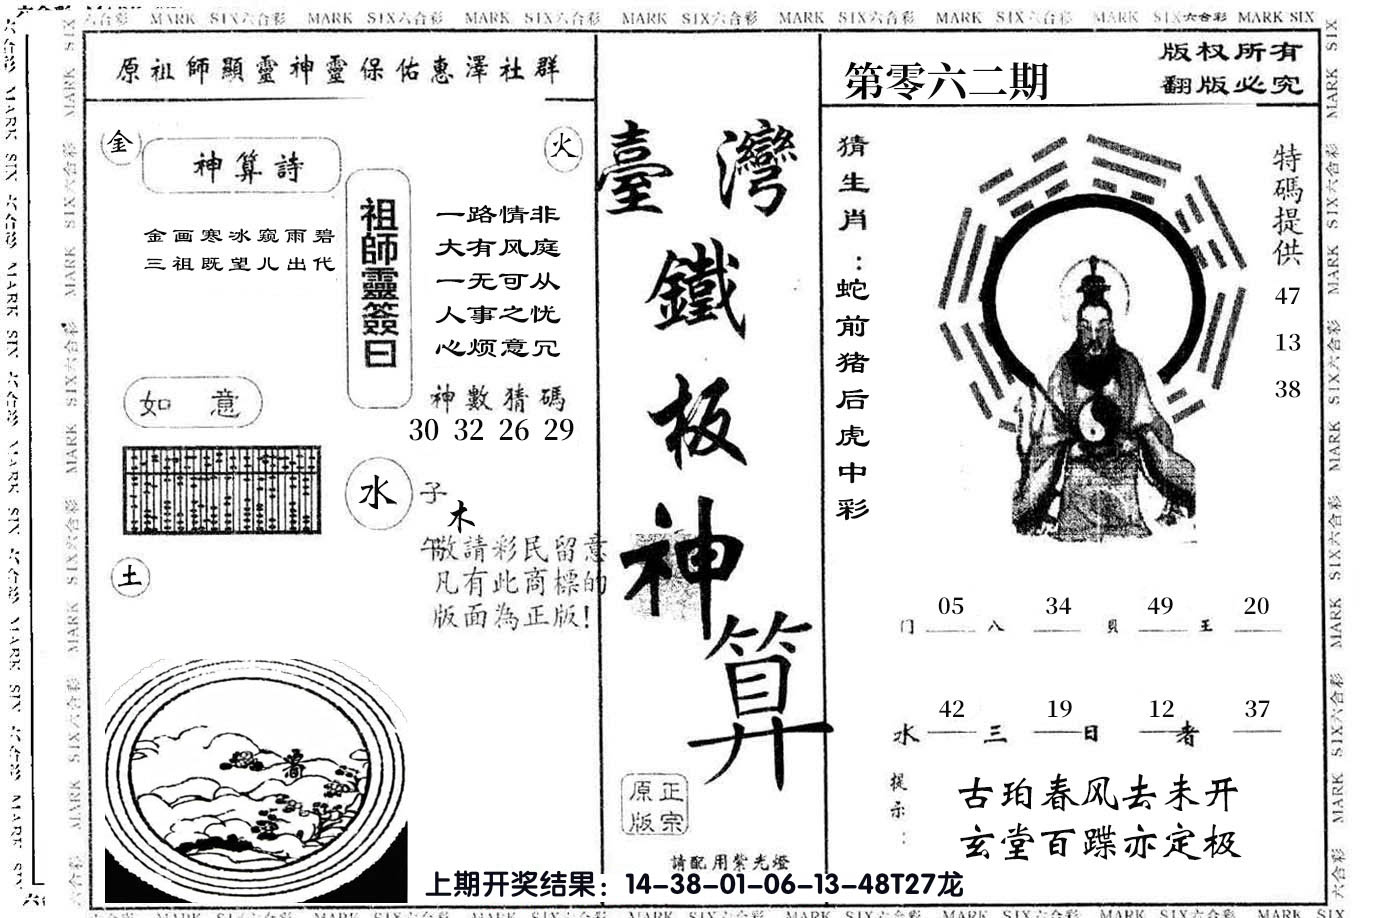 MARK SIX六合彩 MARK SIX六合彩 MARK SIX六合彩 MARK SIX六合彩 MARK SIX六合彩 MARK SIX六合彩 MARK SIX六合彩 MARK SIX
原祖師顯靈神靈保佑惠澤社群
金
神算詩
火
金画寒冰窥雨碧
三祖既望儿出代
祖師靈簽曰
一路情非
大有风庭
一无可从
人事之忧
心烦意冗
神數猜碼
30 32 26 29
如 意
水
子
木
午
敬請彩民留意
凡有此商標的
版面為正版!
土
臺灣
鐵
板
神
算
原正
版宗
請配用紫光燈
第零六二期
版权所有
翻版必究
猜生肖:蛇前猪后虎中彩
特碼提供
47
13
38
05 34 49 20
门 八 贝 王
42 19 12 37
水 三 日 者
提示:
古珀春风去未开
玄堂百蹀亦定极
上期开奖结果：14-38-01-06-13-48T27龙